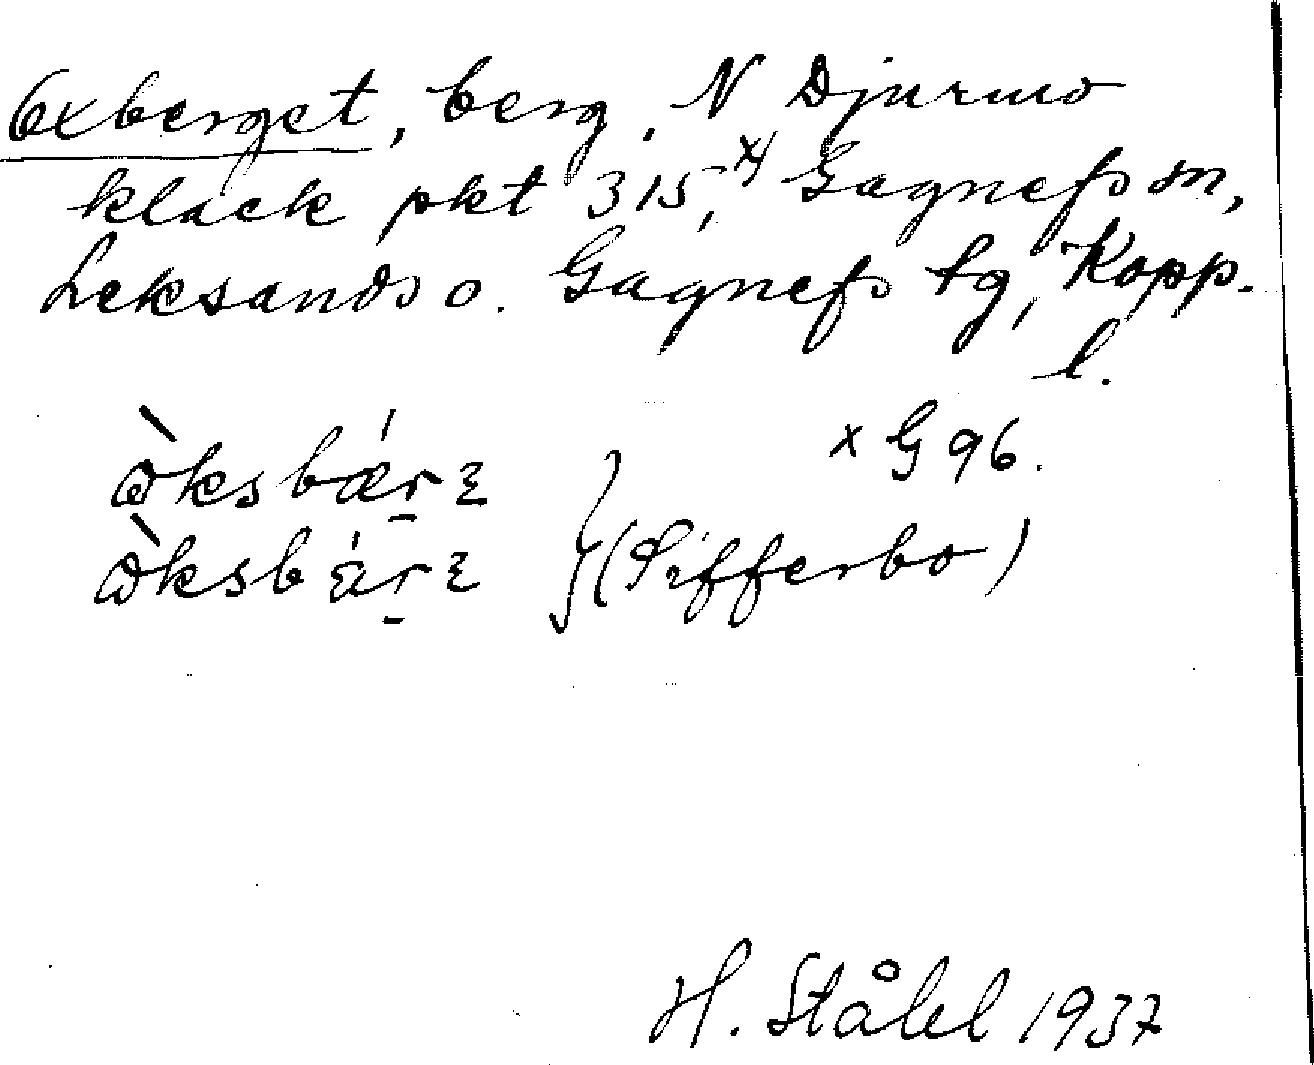 Oxberget, berg, N Djurmo
klack pkt 315,ˣ⁾ Gagnefs sn,
Leksands o. Gagnefs tg, Kopp.
l.
ˣ G 96.
(Sifferbo)
H. Ståhl 1937